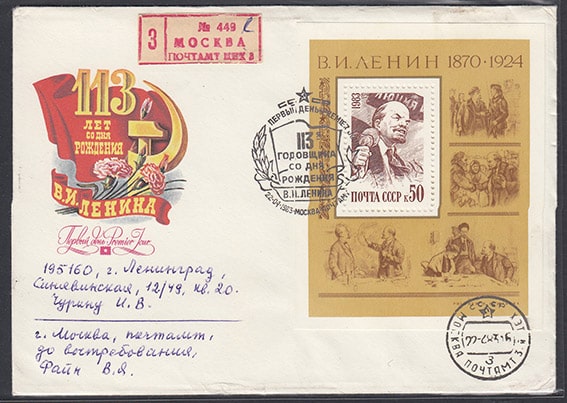 № 449
З МОСКВА
ПОЧТАМТ ЦЕХ 3
113
ЛЕТ
СО ДНЯ
РОЖДЕНИЯ
В.И.ЛЕНИНА
Первый день Premier Jour
В.И.ЛЕНИН 1870·1924
1983
ПОЧТА СССР К 50
ПЕРВЫЙ ДЕНЬ
113
ГОДОВЩИНА
СО ДНЯ
РОЖДЕНИЯ
В.И.ЛЕНИНА
22-04-1983·МОСКВА
195160, г. Ленинград,
Синявинская, 12/49, кв. 20.
Чурину И. В.
г. Москва, почтамт,
до востребования,
Файн В.Я.
МОСКВА ПОЧТАМТ